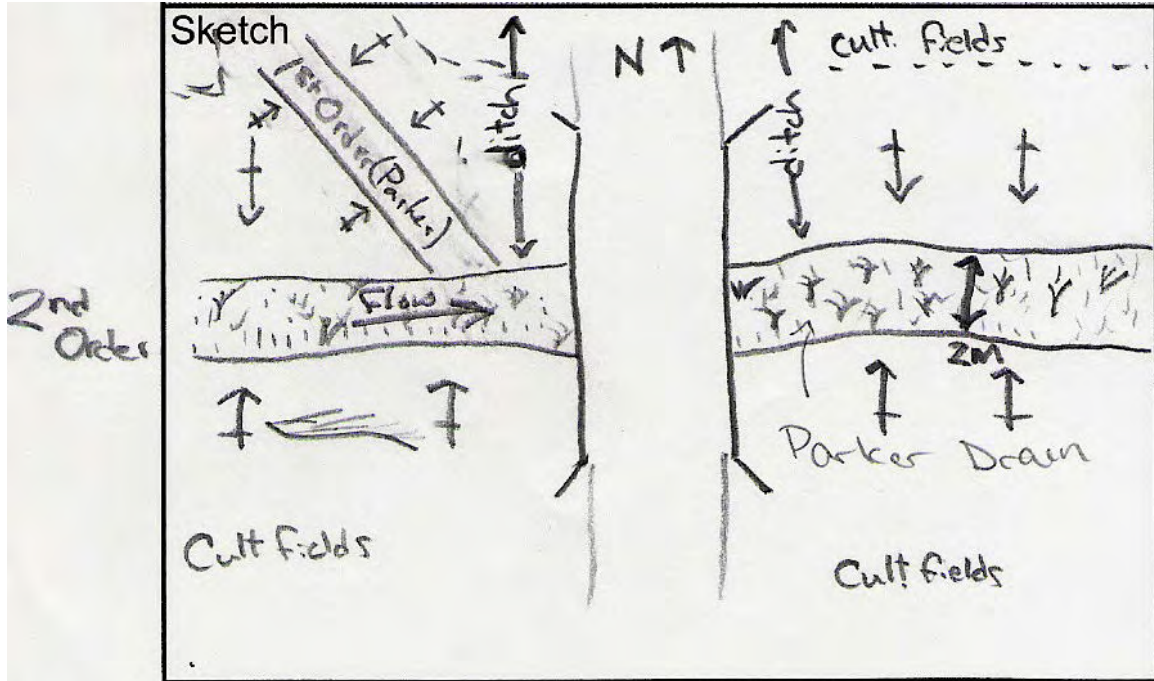 Sketch
1st Order (Parker)
ditch
N
ditch
Cult. fields
2nd
Order
Flow
2M
Parker Drain
Cult fields
Cult fields